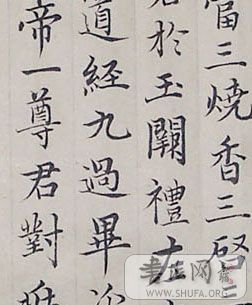 當三燒香三啓
於玉闕禮
道經九過畢
帝一尊君對
書法网
WWW.SHUFA.ORG